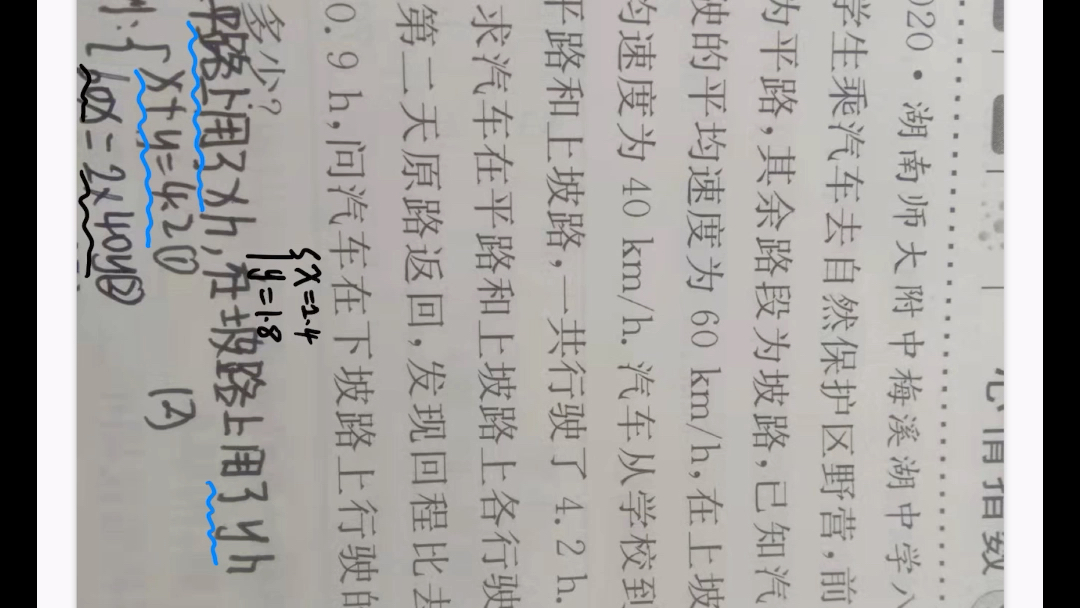 心情指数
020·湖南师大附中梅溪湖中学八
学生乘汽车去自然保护区野营,前
为平路,其余路段为坡路,已知汽
驶的平均速度为 60 km/h,在上坡
均速度为 40 km/h. 汽车从学校到
平路和上坡路,一共行驶了 4.2 h.
求汽车在平路和上坡路上各行驶
第二天原路返回,发现回程比去
0.9 h,问汽车在下坡路上行驶的
多少?
{x=2.4
y=1.8
平路上用了xh,在坡路上用了yh
{x+y=4.2①
60x=2×40y②
(2)